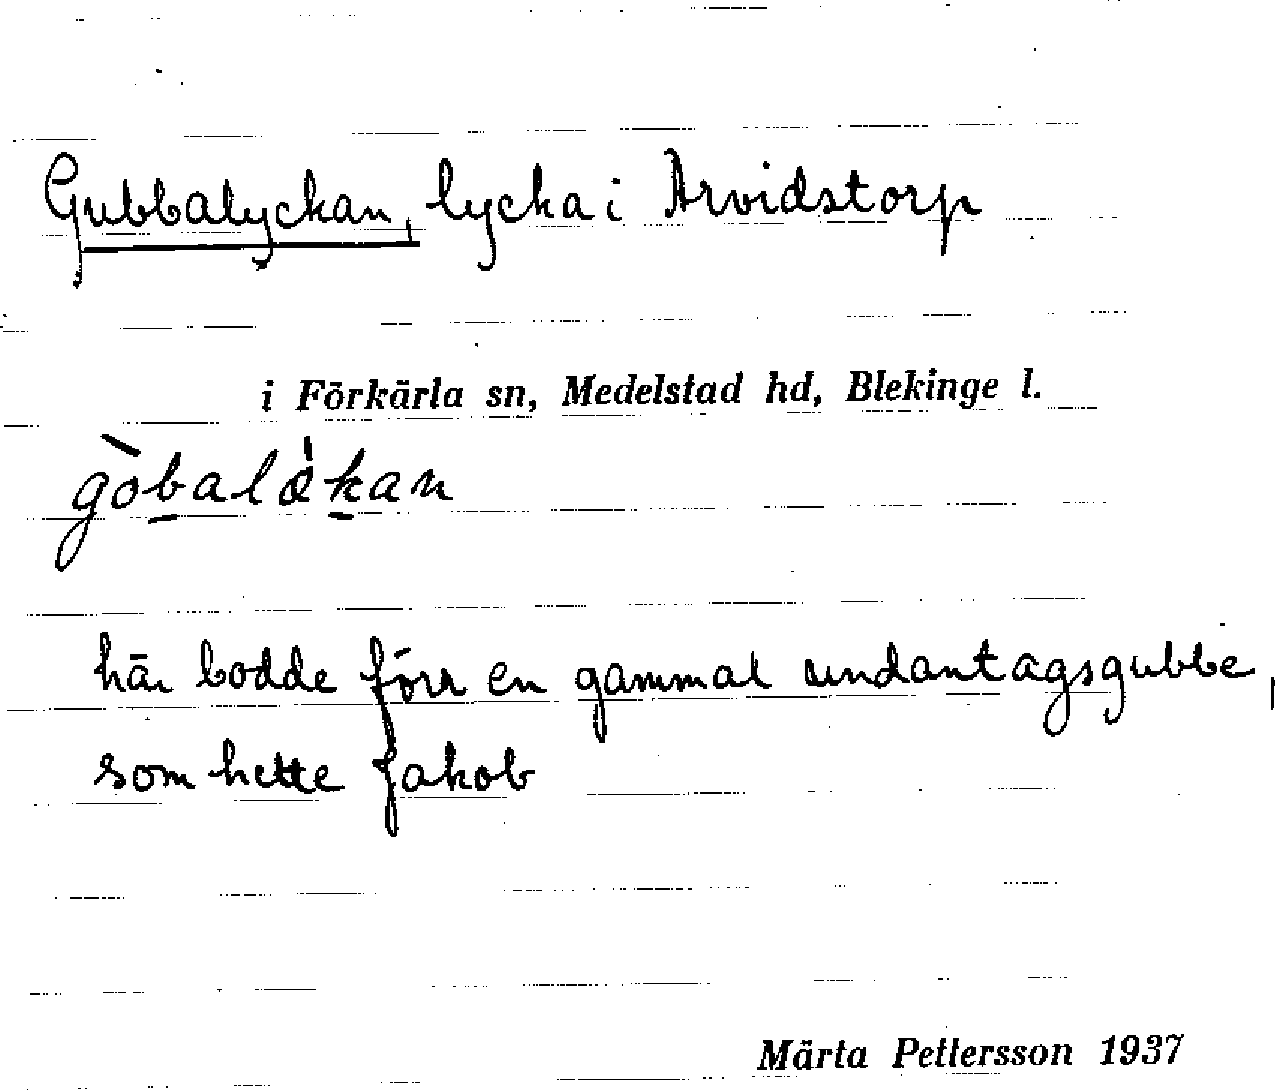 Gubbalyckan, lycka i Arvidstorp
i Förkärla sn, Medelstad hd, Blekinge l.
gòbalökan
här bodde förr en gammal undantagsgubbe,
som hette Jakob
Märta Pettersson 1937